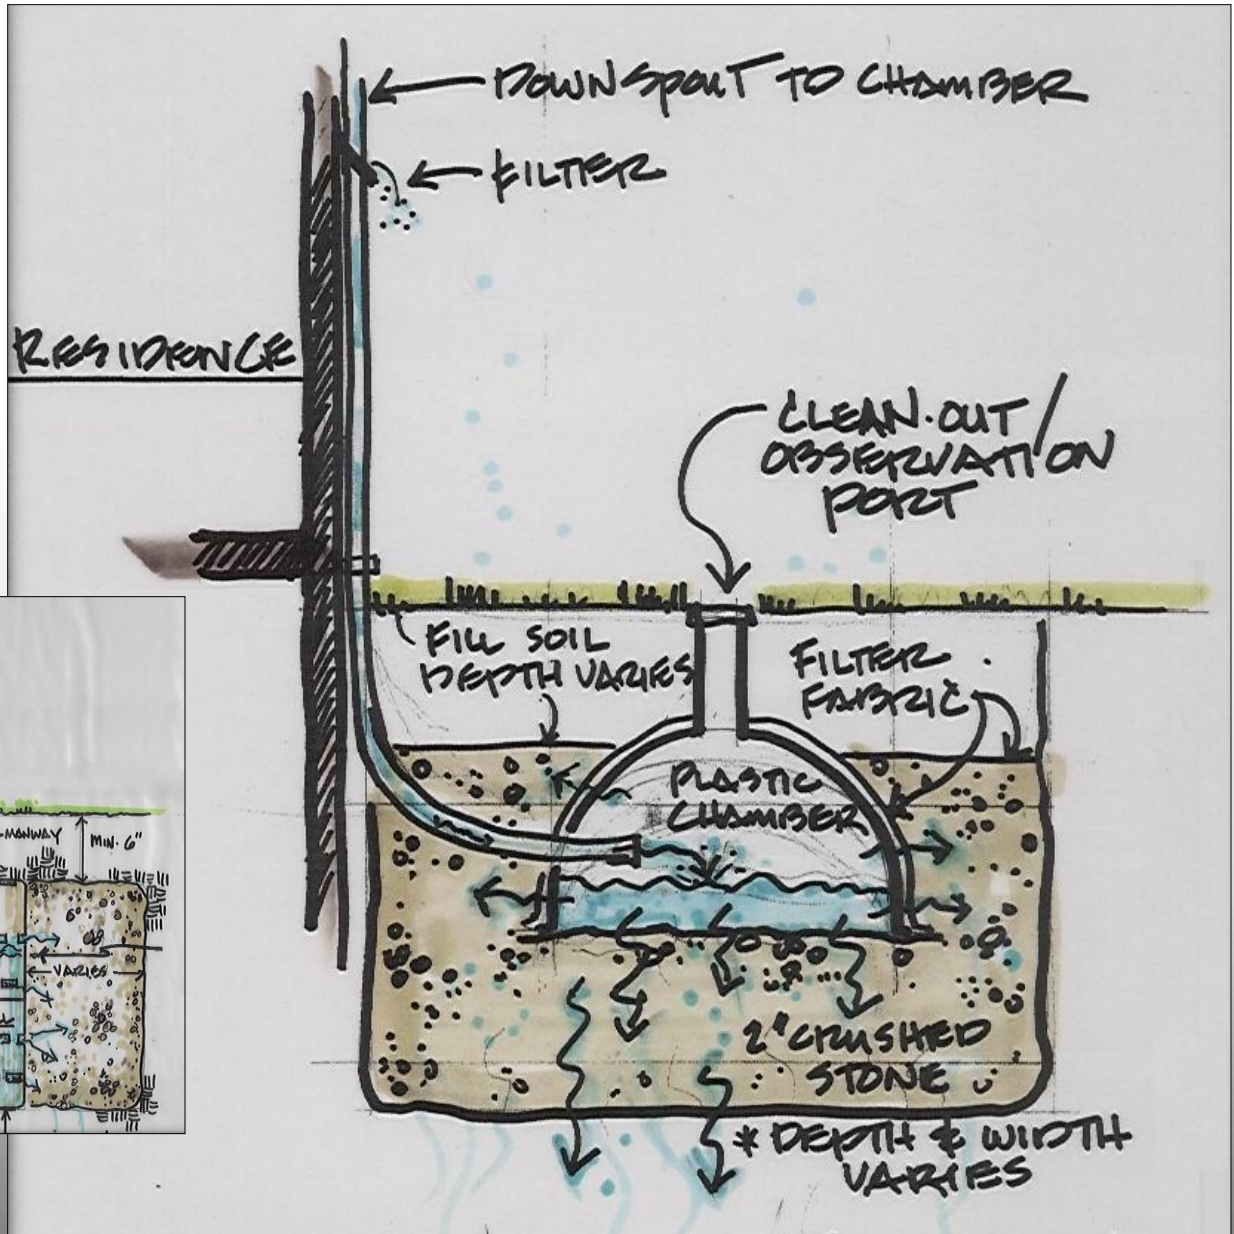 DOWNSPOUT TO CHAMBER
FILTER
RESIDENCE
CLEAN-OUT/
OBSERVATION
PORT
FILL SOIL
DEPTH VARIES
FILTER
FABRIC
PLASTIC
CHAMBER
2" CRUSHED
STONE
* DEPTH & WIDTH
VARIES
MANWAY
MIN. 6"
VARIES